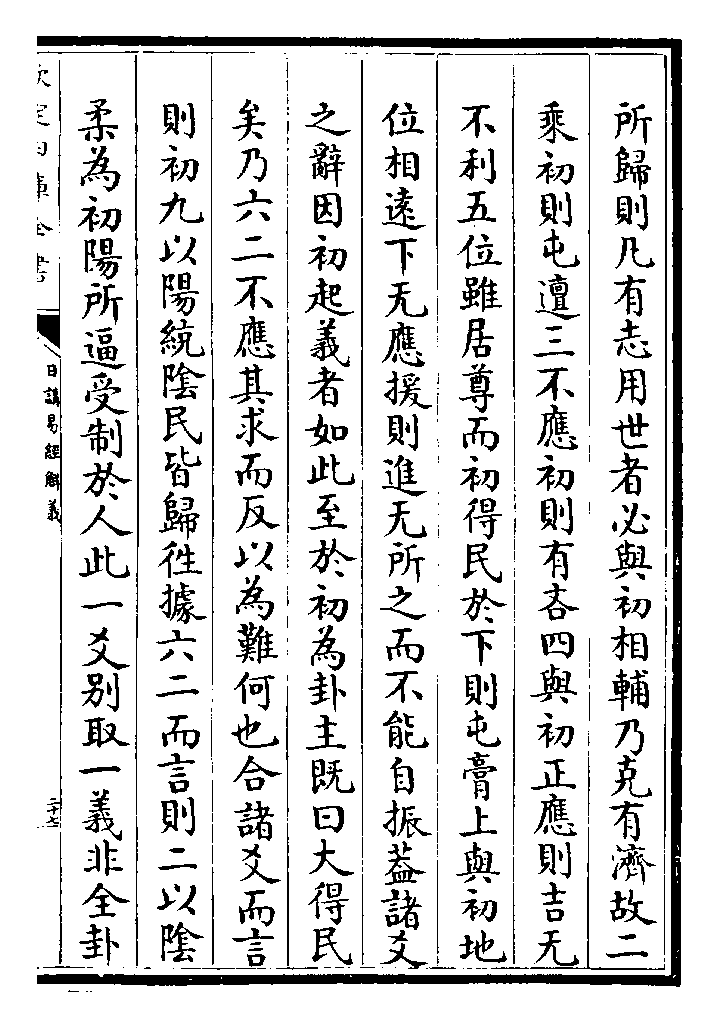 所歸則凡有志用世者必與初相輔乃克有濟故二
乘初則屯邅三不應初則有吝四與初正應則吉无
不利五位雖居尊而初得民於下則屯膏上與初地
位相遠下无應援則進无所之而不能自振葢諸爻
之辭因初起義者如此至於初為卦主既曰大得民
矣乃六二不應其求而反以為難何也合諸爻而言
則初九以陽統陰民皆歸徃據六二而言則二以陰
柔為初陽所逼受制於人此一爻别取一義非全卦
欽定四庫全書
日講易經解義
二十七